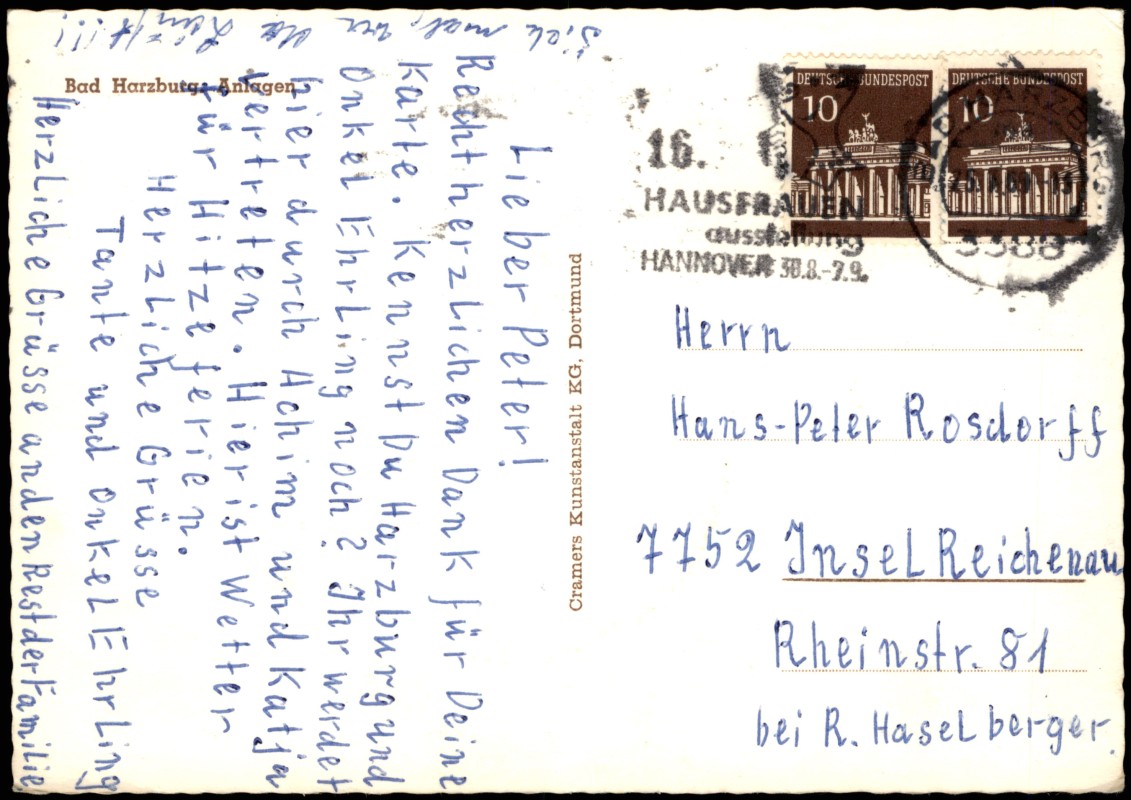 Bad Harzburg, Anlagen
Lieber Peter!
Recht herzlichen Dank für Deine
Karte. Kennst Du Harzburg und
Onkel Ehrling noch? Ihr werdet
hier durch Achim und Katja
vertreten. Hier ist Wetter
für Hitzeferien.
Herzliche Grüsse
Tante und Onkel Ehrling
Herzliche Grüsse an den Rest der Familie
Sieh mal, wer da
Cramers Kunstanstalt KG, Dortmund
DEUTSCHE BUNDESPOST
10
DEUTSCHE BUNDESPOST
10
16.
HAUSFRAUEN
ausstellung
HANNOVER 30.8.-7.9.
HARZBURG
3388
Herrn
Hans-Peter Rosdorff
7752 Insel Reichenau
Rheinstr. 81
bei R. Haselberger.